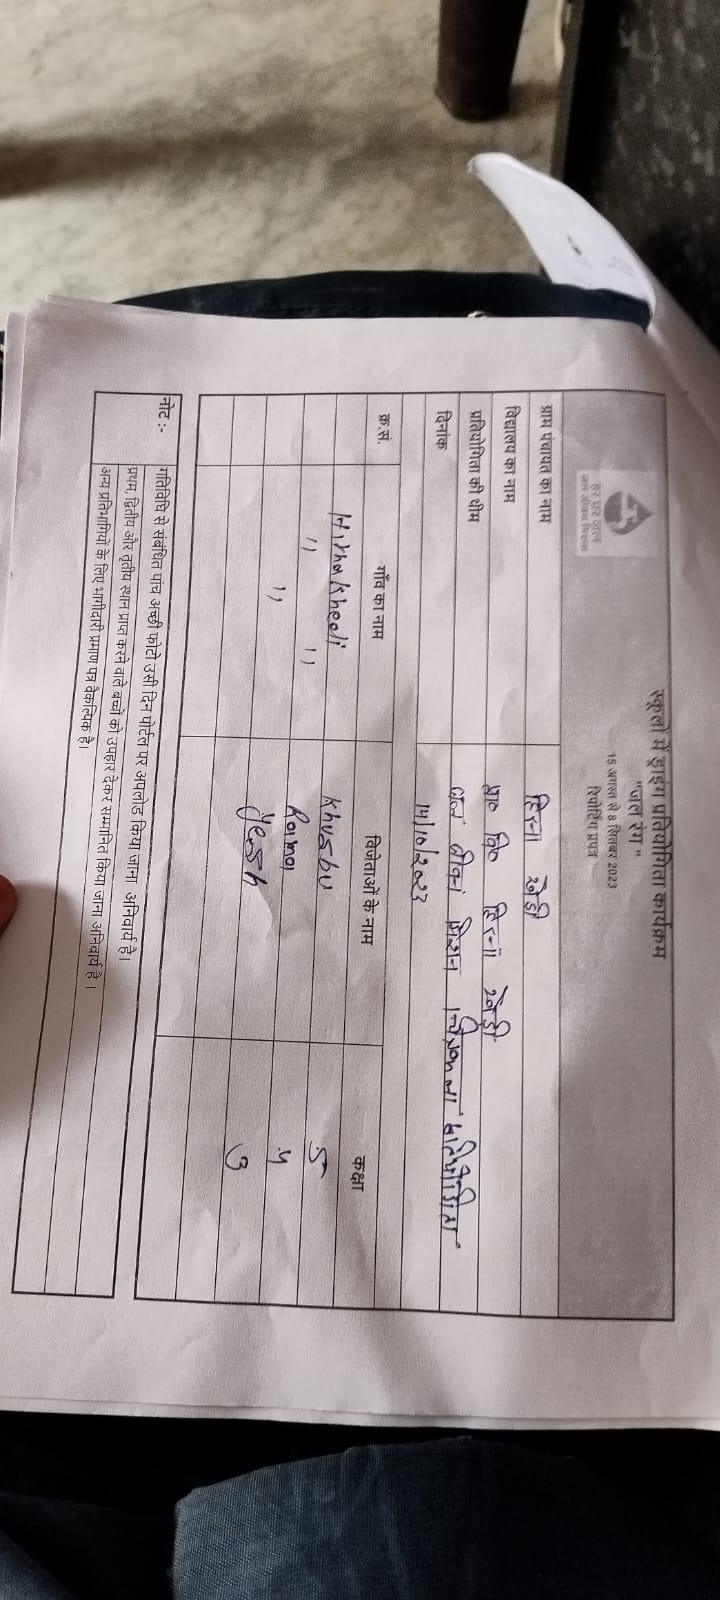 हर घर जल
जल जीवन मिशन
स्कूलों में ड्राइंग प्रतियोगिता कार्यक्रम
"जल रंग"
15 अगस्त से 8 सितंबर 2023
रिपोर्टिंग प्रपत्र
ग्राम पंचायत का नाम हिरना खेड़ी
विद्यालय का नाम प्रा० वि० हिरना खेड़ी
प्रतियोगिता की थीम जल जीवन मिशन चित्रकला प्रतियोगिता
दिनांक 14/10/2023
क्र.सं. गाँव का नाम विजेताओं के नाम कक्षा
Hirna Khedi Khusbu 5
'' '' Rama 4
'' Yesh 3
नोट :- गतिविधि से संबंधित पांच अच्छी फोटो उसी दिन पोर्टल पर अपलोड किया जाना अनिवार्य है।
प्रथम, द्वितीय और तृतीय स्थान प्राप्त करने वाले बच्चो को उपहार देकर सम्मानित किया जाना अनिवार्य है।
अन्य प्रतिभागियों के लिए भागीदारी प्रमाण पत्र वैकल्पिक है।